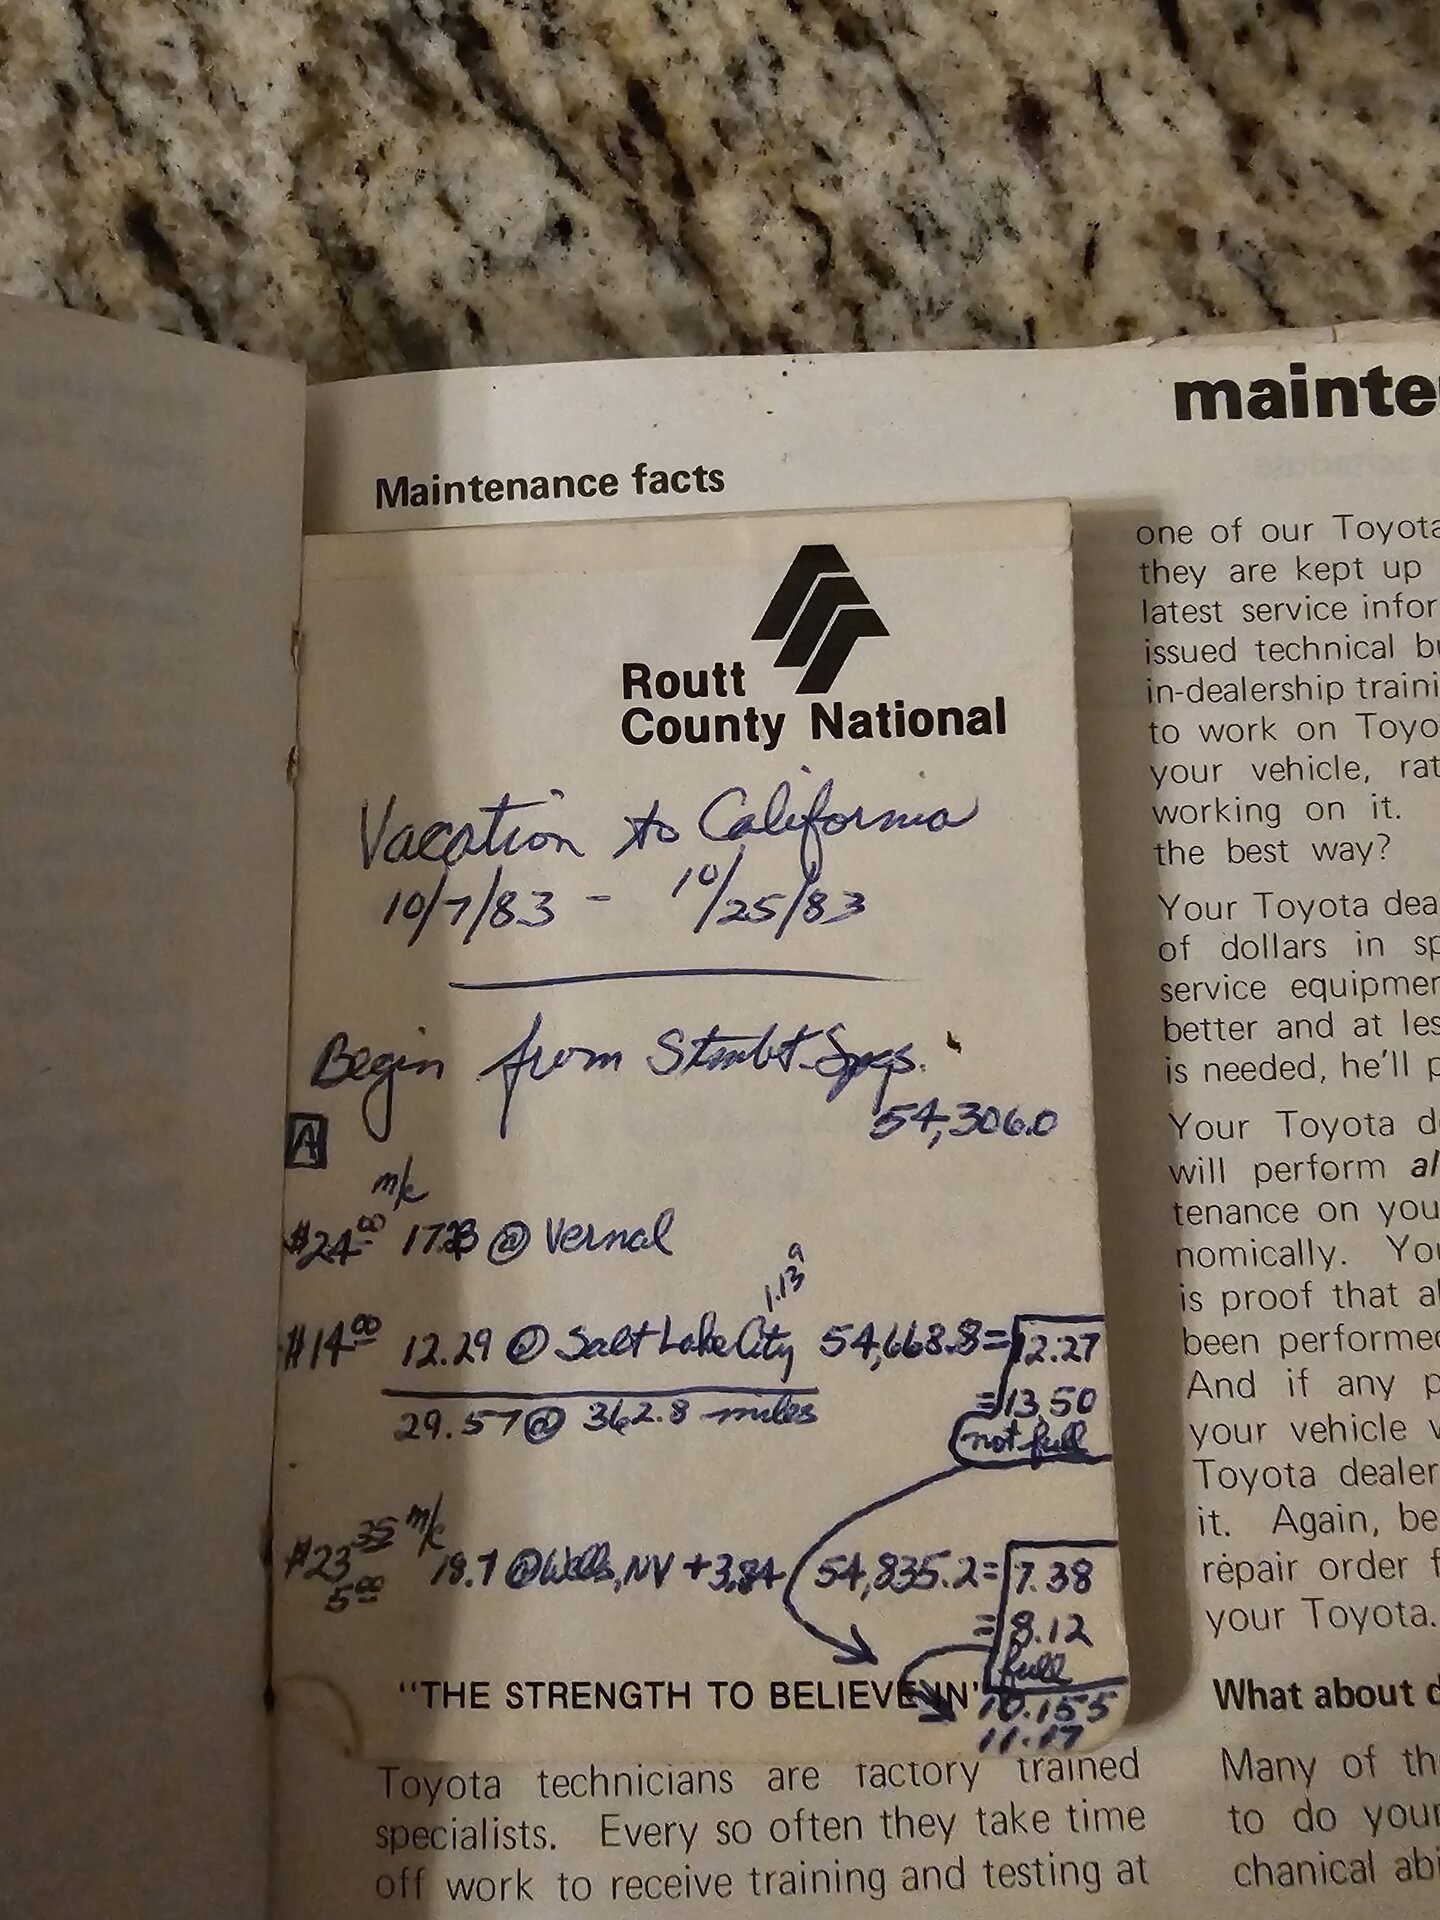 mainte
Maintenance facts
Routt
County National
Vacation to California
10/7/83 - 10/25/83
Begin from Stmbt. Spgs.
54,306.0
A
m/c
$24.00 @ Vernal
1.13 9
$14.00 12.29 @ Salt Lake City 54,668.8 = 12.27
29.57 @ 362.8 miles = 13.50
not full
$23.35 m/c 18.7 @ Wells, NV + 3.84 54,835.2 = 7.38
5.00 = 8.12
full
"THE STRENGTH TO BELIEVE IN" 10.155
11.17
Toyota technicians are factory trained
specialists. Every so often they take time
off work to receive training and testing at
one of our Toyota
they are kept up
latest service infor
issued technical bu
in-dealership traini
to work on Toyo
your vehicle, rat
working on it.
the best way?
Your Toyota dea
of dollars in sp
service equipmen
better and at les
is needed, he'll p
Your Toyota d
will perform al
tenance on you
nomically. You
is proof that al
been performed
And if any p
your vehicle w
Toyota dealer
it. Again, be
repair order f
your Toyota.
What about d
Many of th
to do your
chanical abi